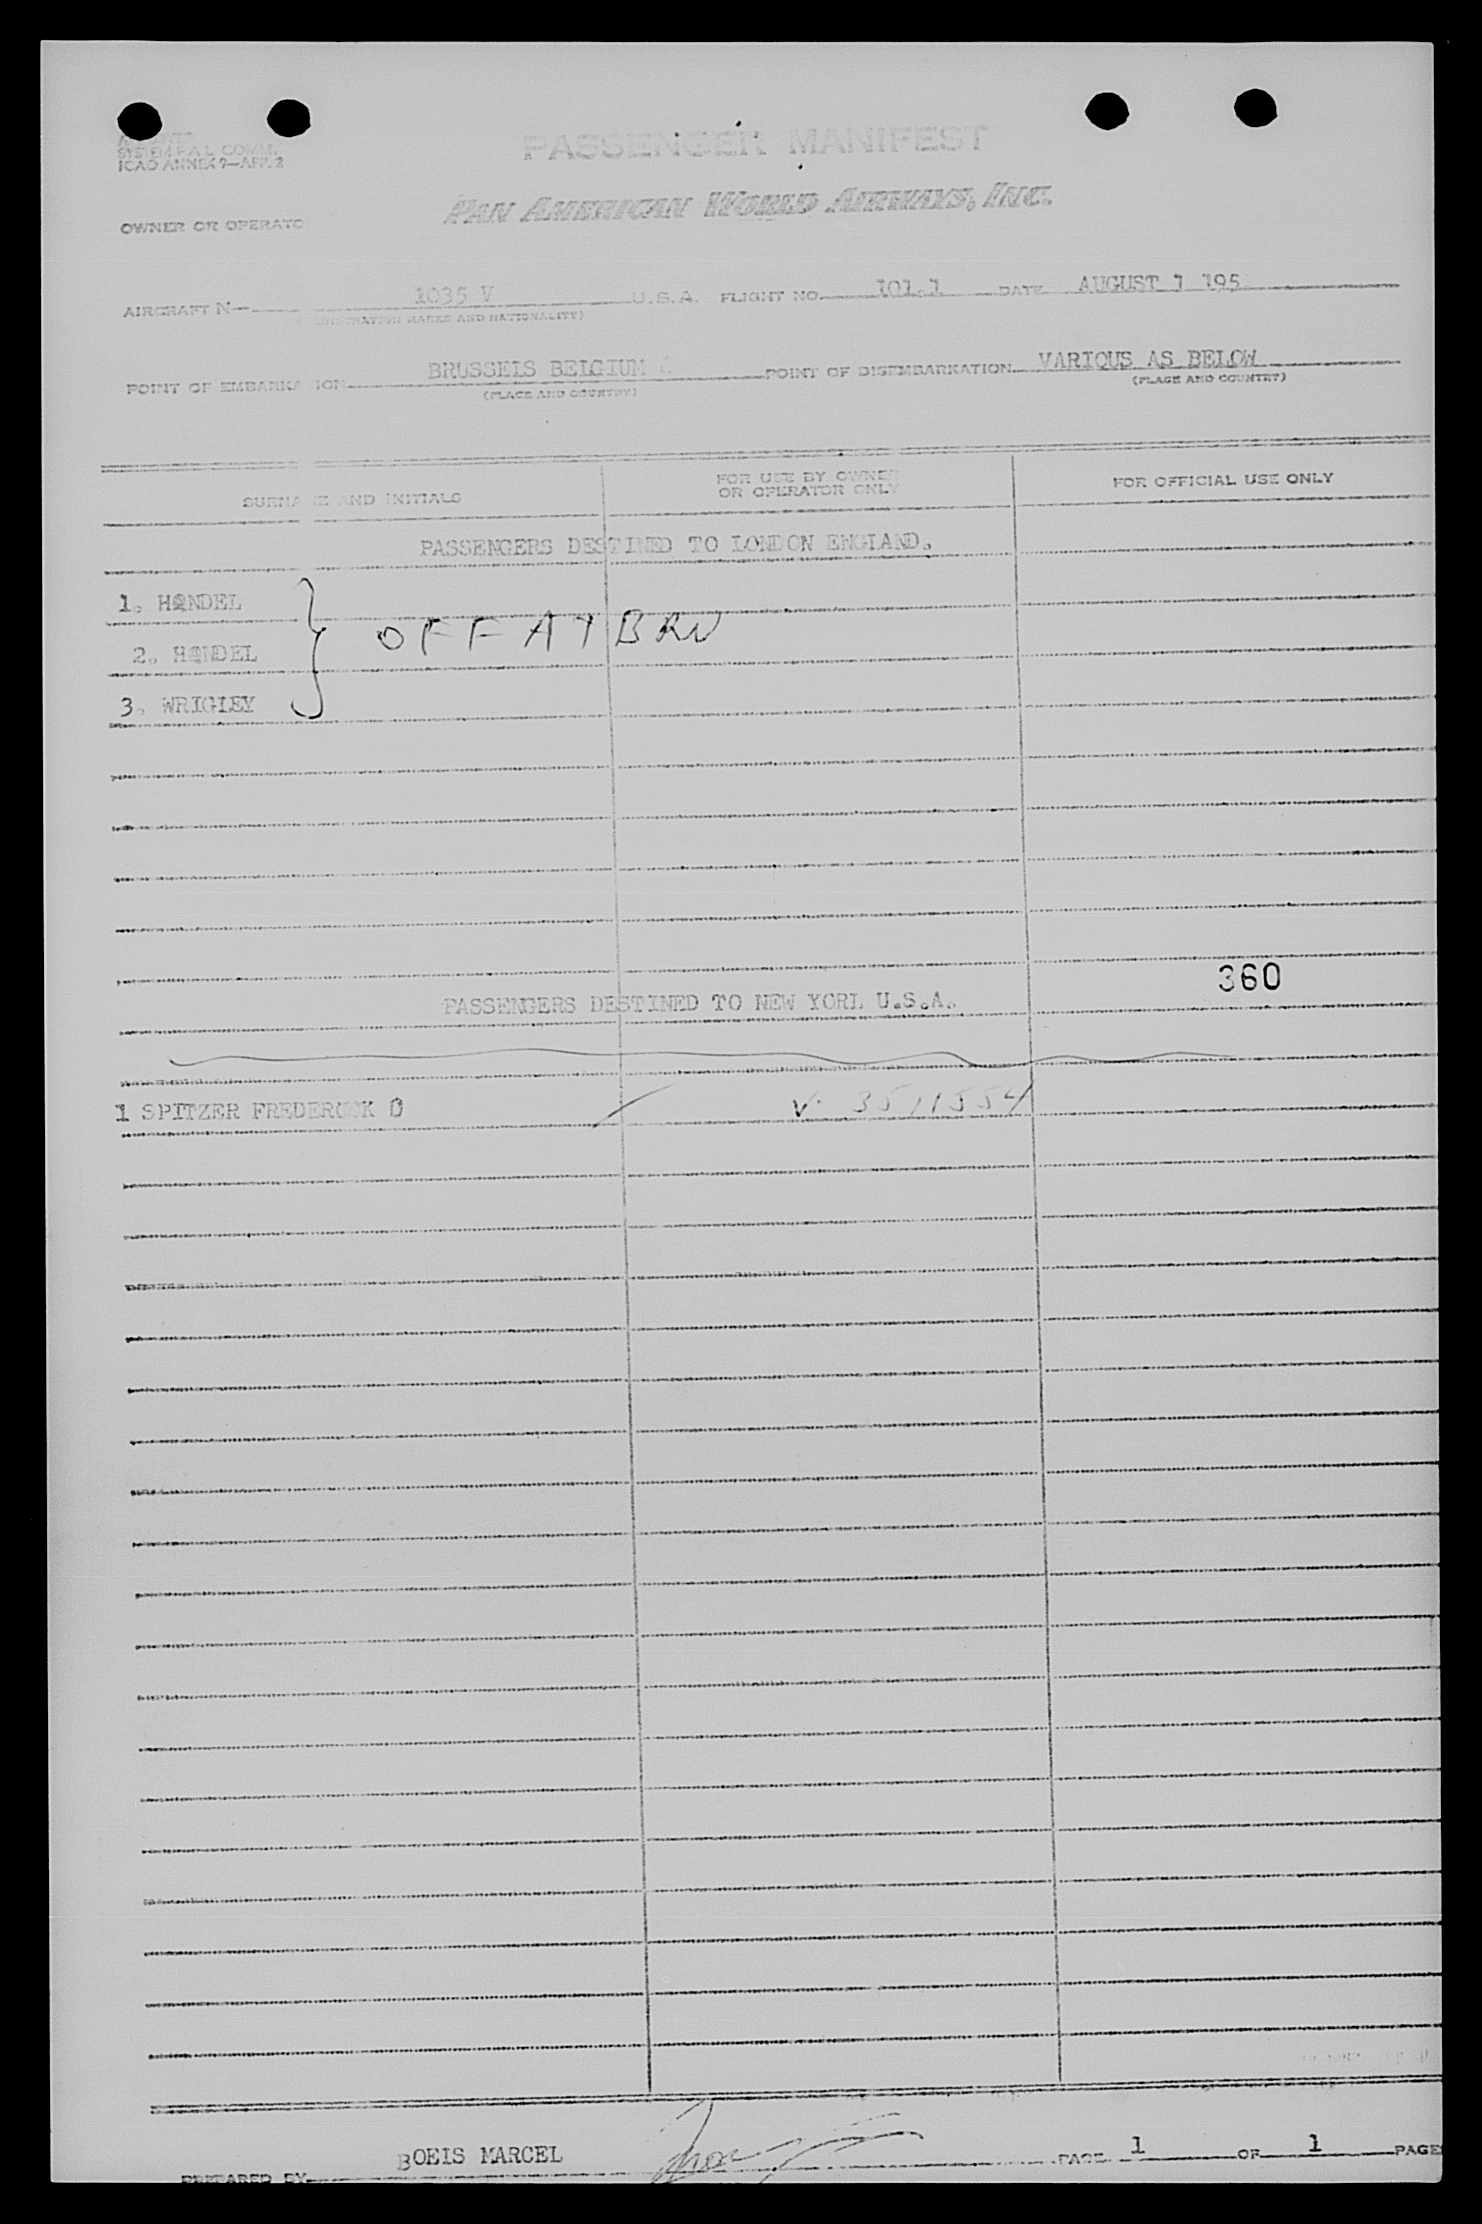 SYSTEM F.A.L. COMM.
ICAO ANNEX 9—APP. 2
PASSENGER MANIFEST
PAN AMERICAN WORLD AIRWAYS, INC.
OWNER OR OPERATO
AIRCRAFT N— 1035 V U.S.A. FLIGHT NO. 101.1 DATE AUGUST 1 195
MARKS AND NATIONALITY)
POINT OF EMBARKA ION BRUSSELS BELGIUM POINT OF DISEMBARKATION VARIOUS AS BELOW
(PLACE AND COUNTRY) (PLACE AND COUNTRY)
SURNA E AND INITIALS FOR USE BY OWNER OR OPERATOR ONLY FOR OFFICIAL USE ONLY
PASSENGERS DESTINED TO LONDON ENGLAND.
1. HANDEL
OFF AT BRU
2. HANDEL
3. WRIGLEY
360
PASSENGERS DESTINED TO NEW YORL U.S.A.
1 SPITZER FREDERICK O V. 3511554
PREPARED BY BOEIS MARCEL PAGE 1 OF 1 PAGE